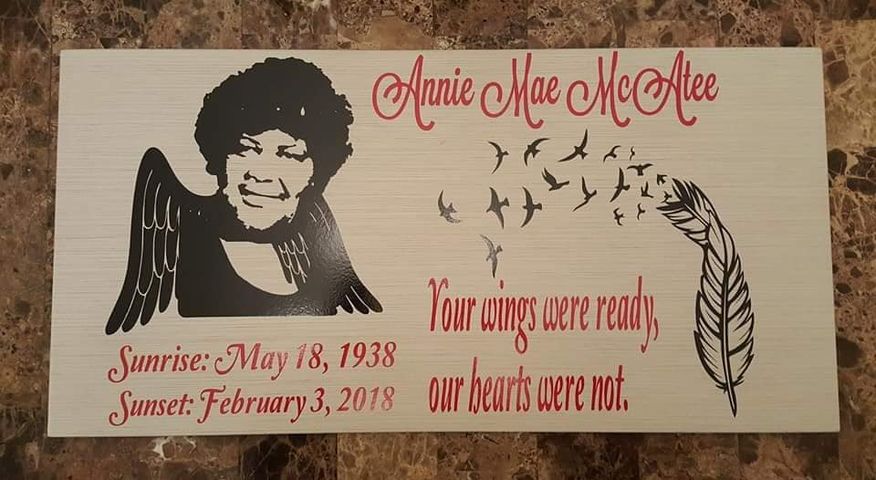 Annie Mae McAtee
Your wings were ready,
our hearts were not.
Sunrise: May 18, 1938
Sunset: February 3, 2018